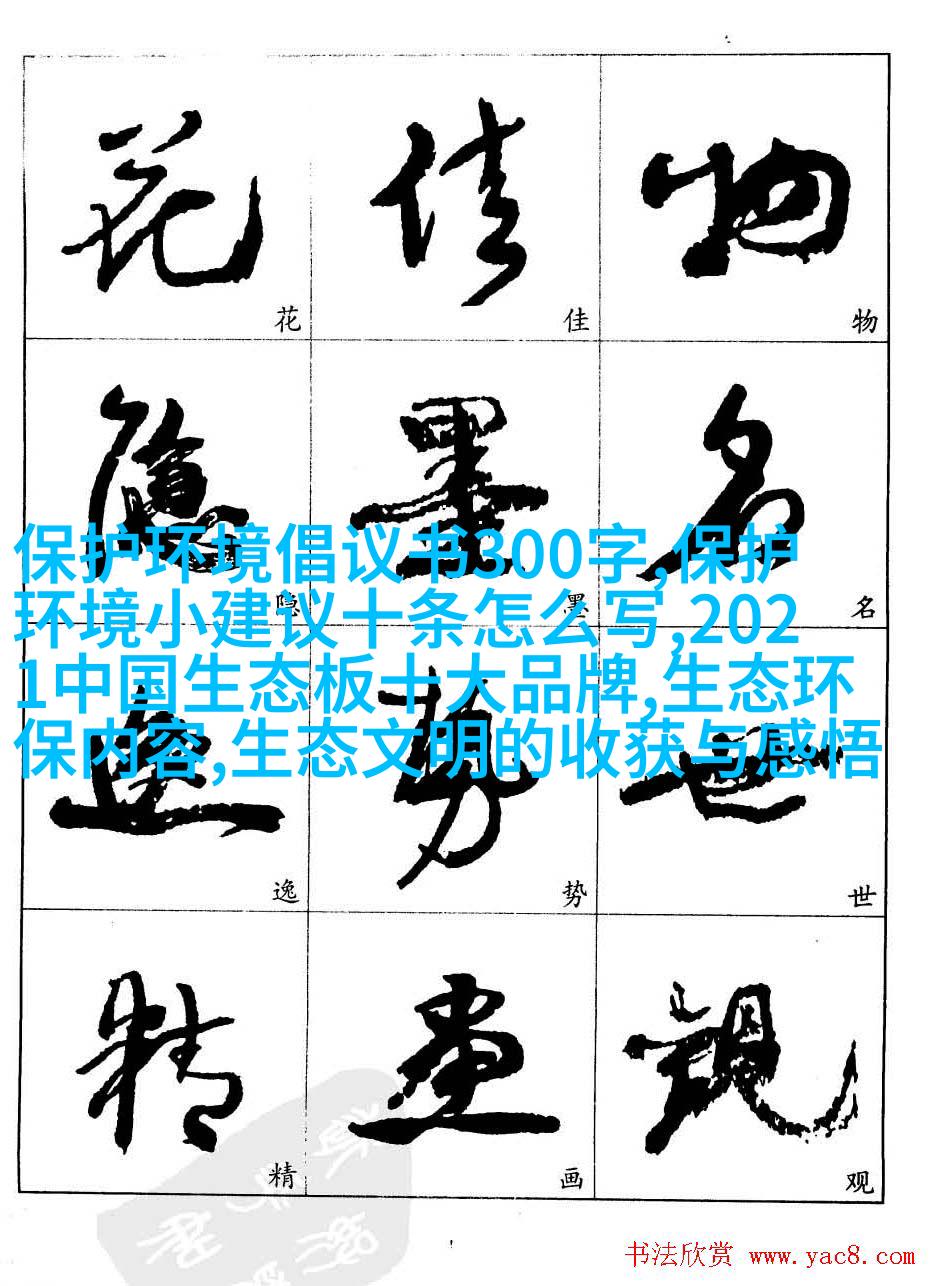 花 佳 物
花 佳 物
隐 墨 名
隐 墨 名
保护环境倡议书300字,保护
环境小建议十条怎么写,202
1中国生态板十大品牌,生态环
保内容,生态文明的收获与感悟
逸 势 世
逸 势 世
精 画 观
精 画 观
书法欣赏 www.yac8.com